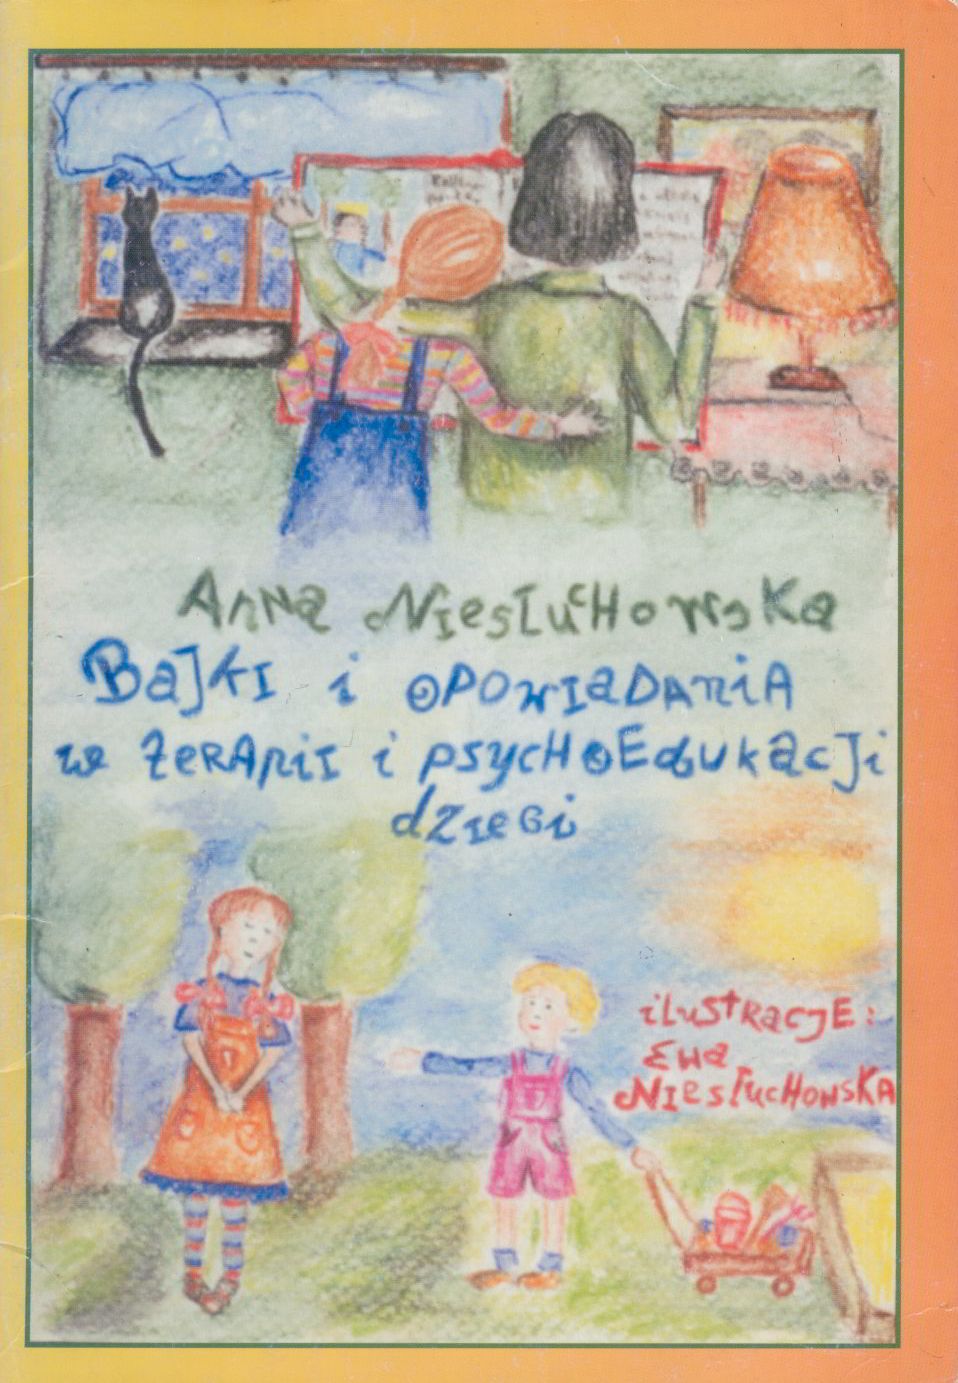 Anna Niesłuchowska
Bajki i opowiadania
w terapii i psychoedukacji
dzieci
ilustracje:
Ewa
Niesłuchowska